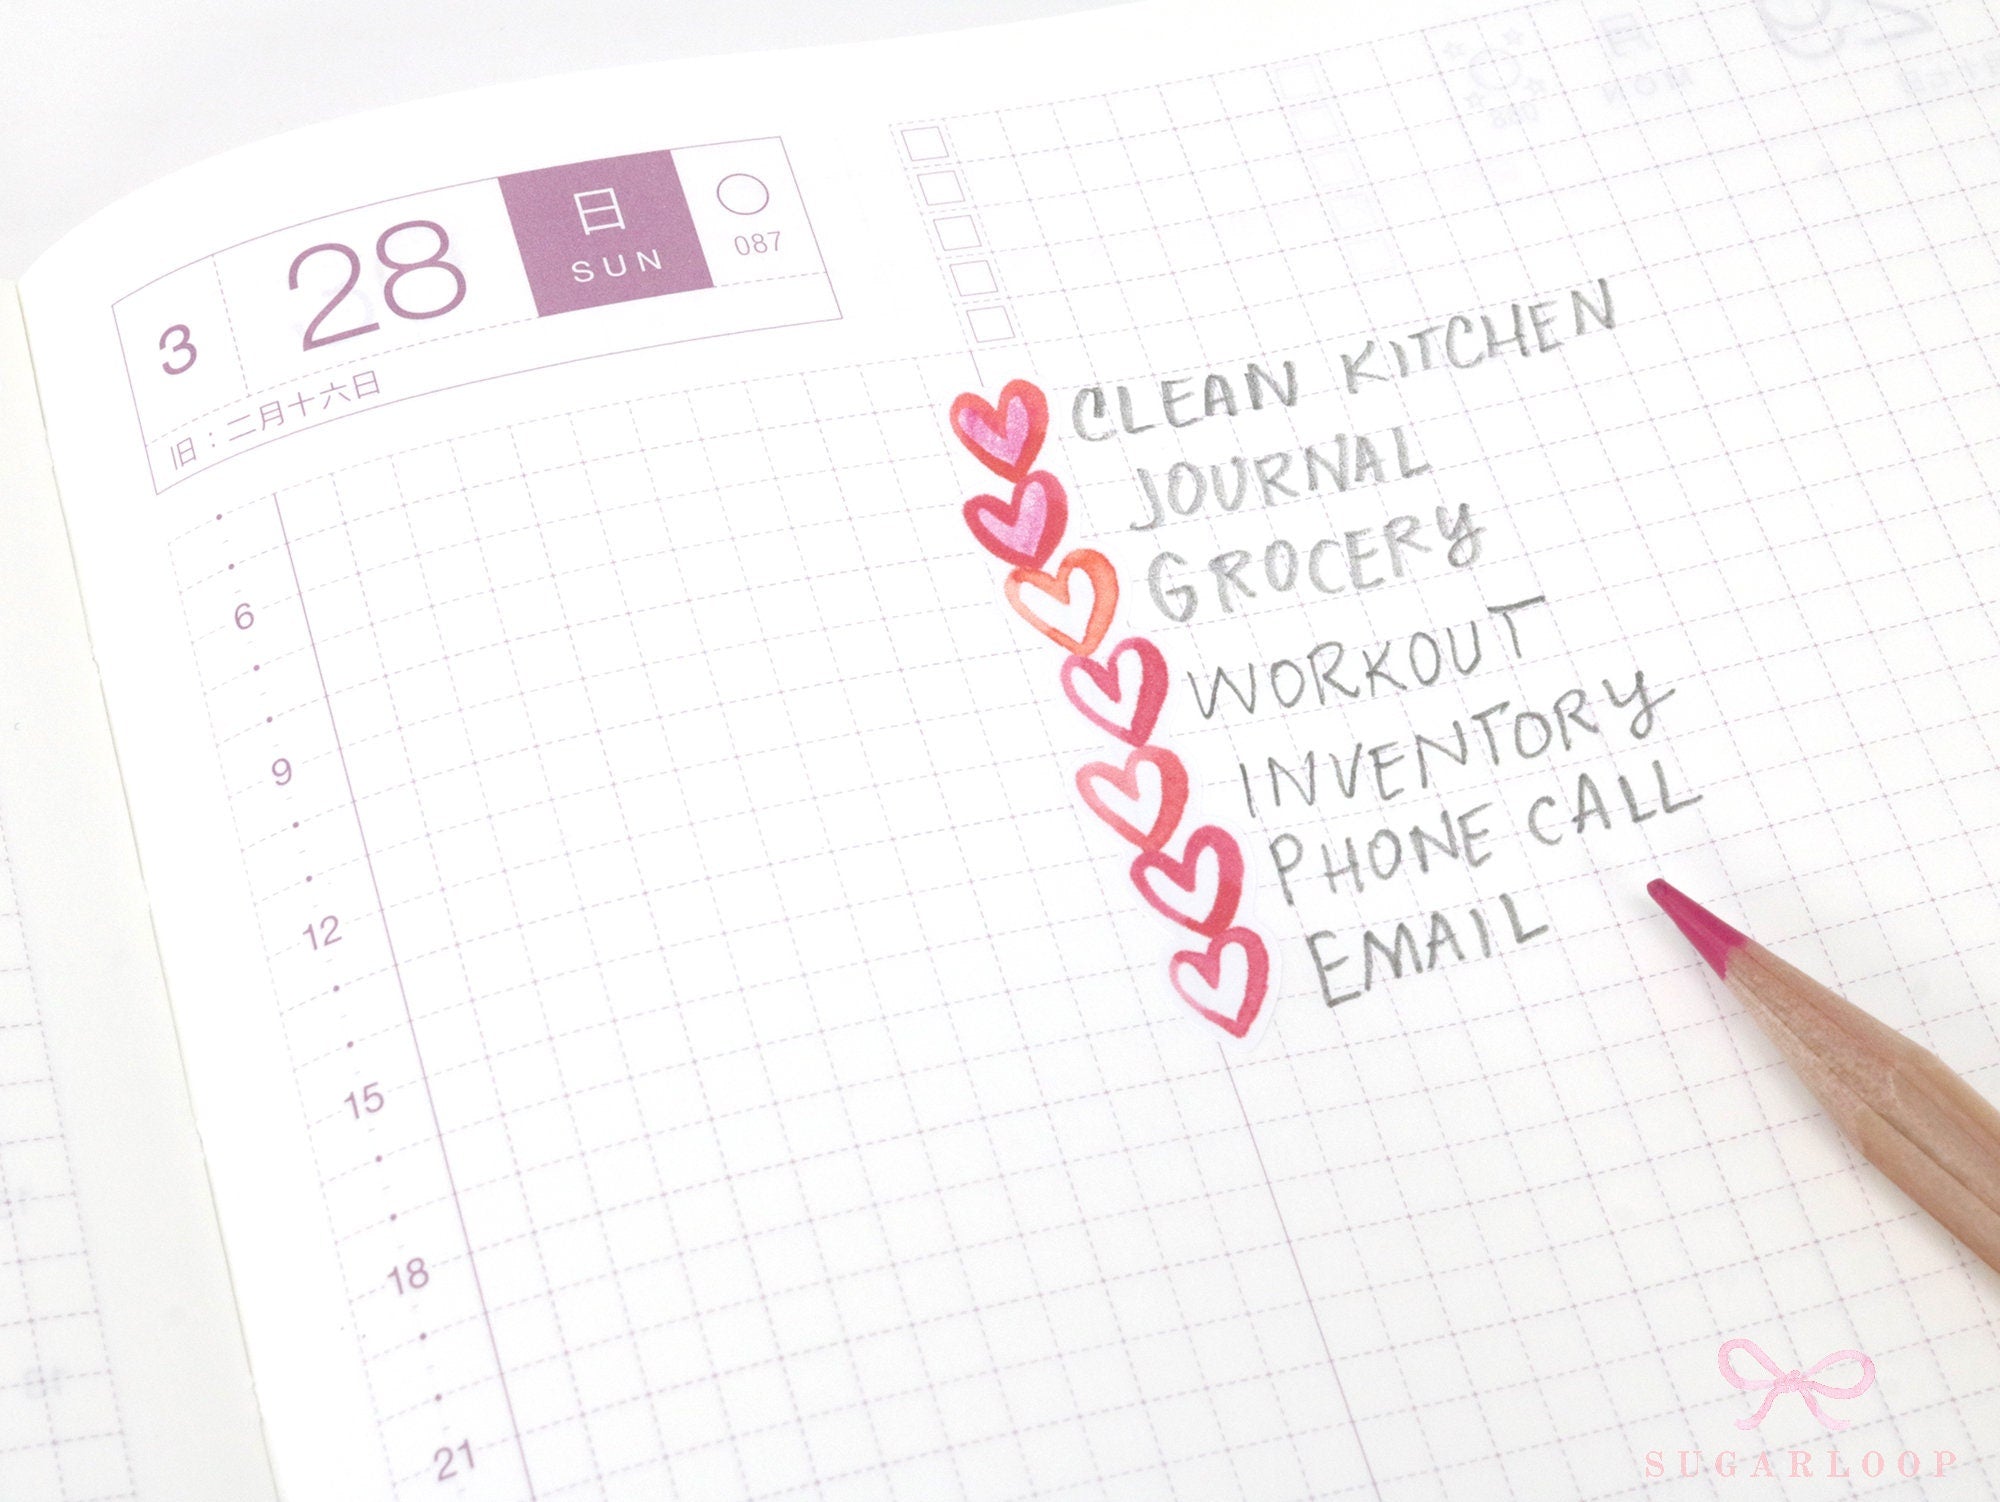 3
28
日
SUN
087
旧:二月十六日
6
9
12
15
18
21
CLEAN KITCHEN
JOURNAL
GROCERY
WORKOUT
INVENTORY
PHONE CALL
EMAIL
SUGARLOOP